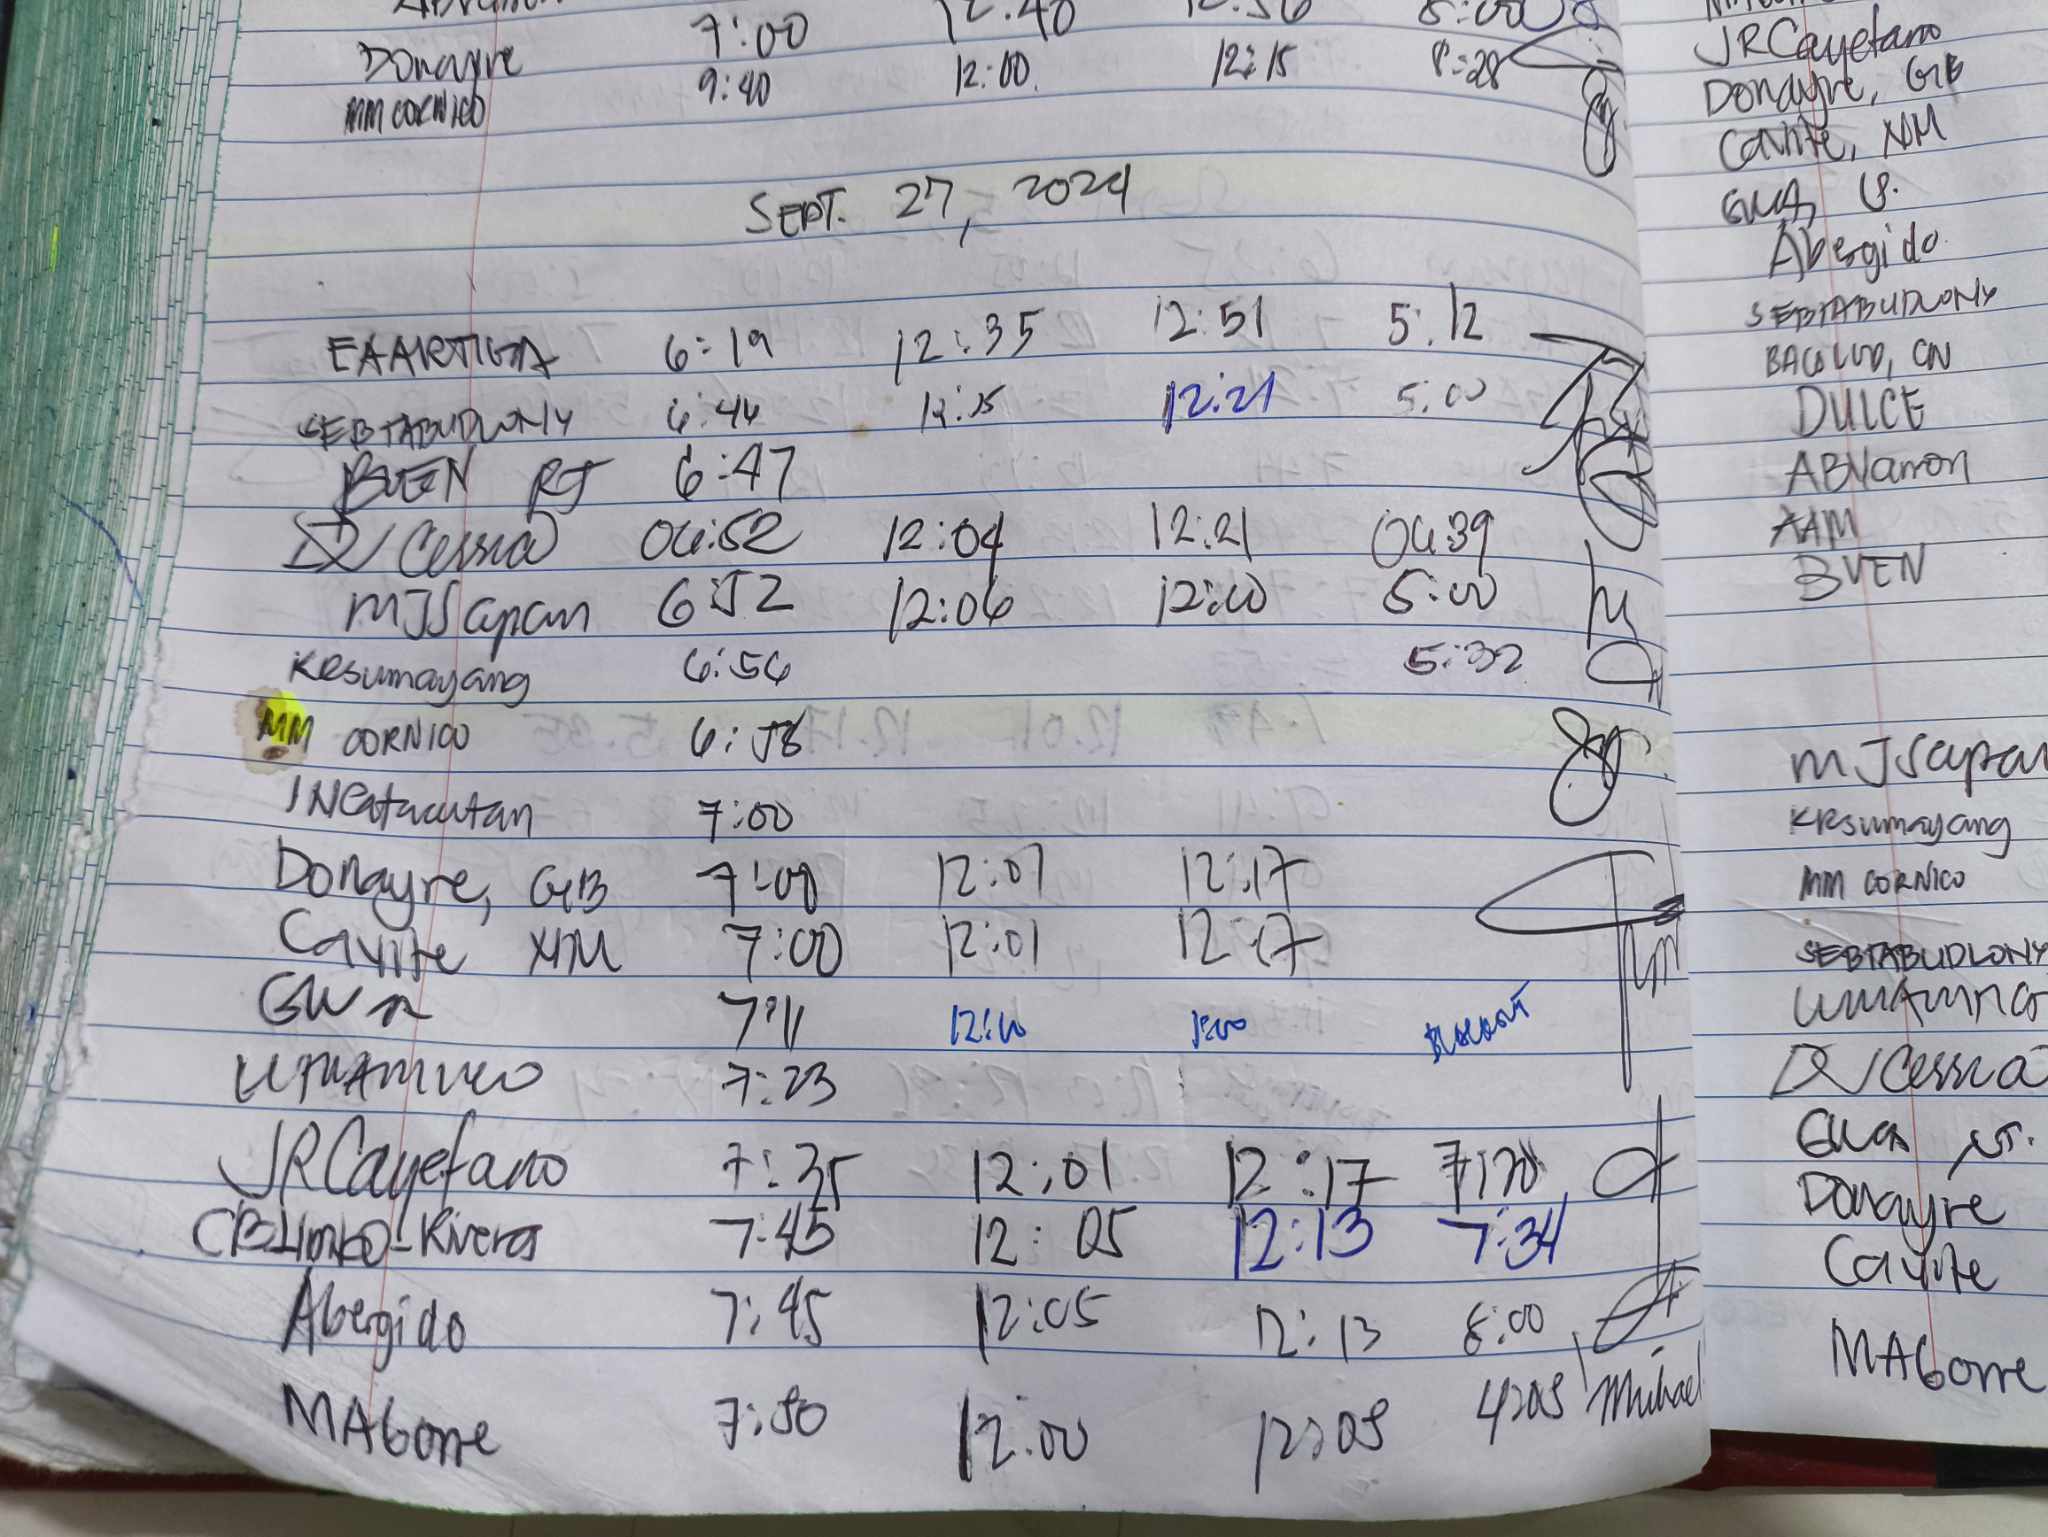 Donayre 7:00 12:40
MM CORNICO 9:40 12:00 12:15 8:28
SEPT. 27, 2024
EAARTIGA 6:19 12:35 12:51 5:12
SEBTABUDLONY 6:44 12:15 12:21 5:00
BUEN RJ 6:47
Cessna 06:52 12:04 12:21 04:39
MJSapan 6:52 12:06 12:20 5:00
KRSumayang 6:56 5:32
MM CORNICO 6:58
INCatacutan 7:00
Donayre, GB 7:00 12:01 12:17
Cavite NM 7:00 12:01 12:17
GUA 7:11 12:00 1:00
7:23
JRCayetano 7:35 12:01 12:17
CBLimko-Rivera 7:45 12:05 12:13 7:34
Abergido 7:45 12:05 12:13 8:00
MAGorre 7:50 12:00 12:05 4:05 Michael
JRCayetano
Donayre, GB
Cavite, NM
GUA,
Abergido
SEBTABUDLONY
BACOLOD, CN
DULCE
ABVarron
AAM
BUEN
MJSapan
KRSumayang
MM CORNICO
SEBTABUDLONY
Cessna
GUA
Donayre
Cavite
MAGorre